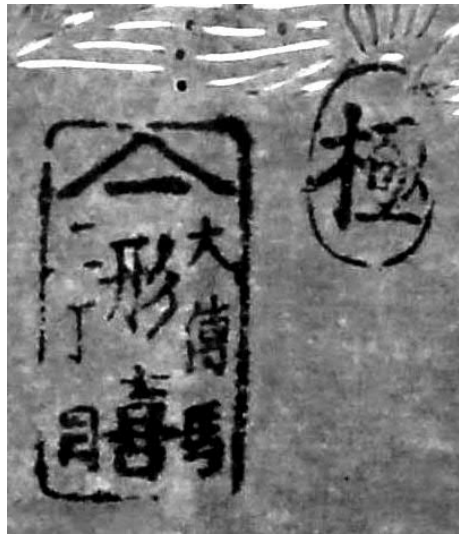 極
大傳馬
形喜
二丁目